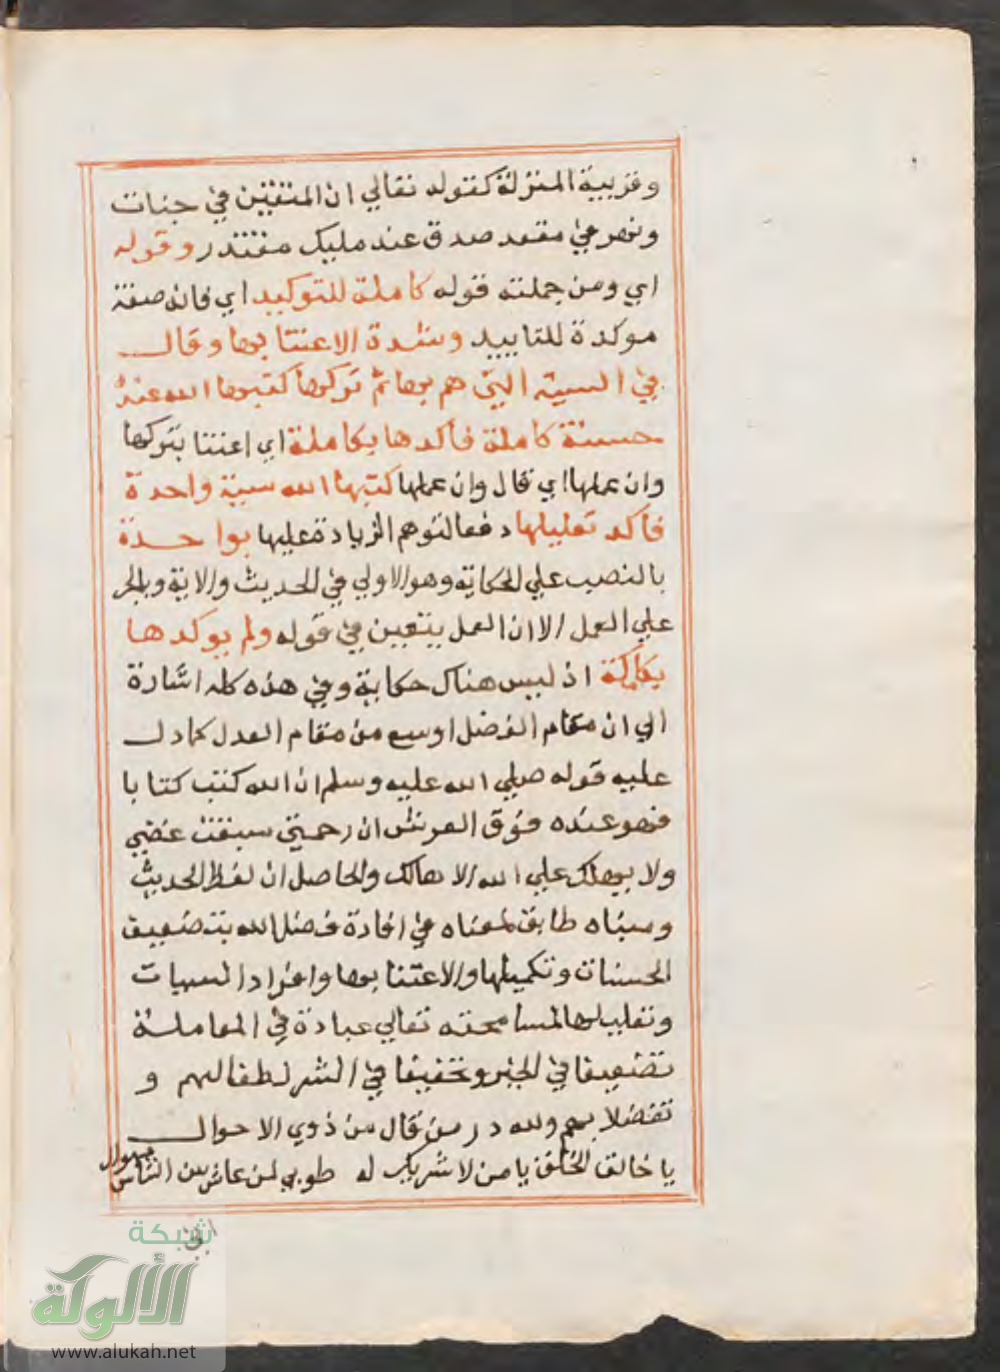 وقريبة المنزلة كقوله تعالي ان المتقين في جنات
ونهر في مقعد صدق عند مليك مقتدر وقوله
اي ومن جملته قوله كاملة للتوكيد اي فانه صفة
موكدة للتاييد وشدة الاعتنا بها وقال
في السيئة التي هم بها ثم تركها كتبها الله عنده
حسنة كاملة فاكدها بكاملة اي اعتنا بتركها
وان عملها اي قال وان عملها كتبها الله سيئة واحدة
فاكد تقليلها دفعا لتوهم الزيادة عليها بواحدة
بالنصب علي الحكاية وهو الاولي في الحديث والاية وبالجر
علي العمل الا ان العمل يتعين في قوله ولم يوكدها
بكاملة اذ ليس هناك حكاية وفي هذه كله اشارة
الي ان مقام الفضل اوسع من مقام العدل كما دل
عليه قوله صلي الله عليه وسلم ان الله كتب كتابا
فهو عنده فوق العرش ان رحمتي سبقت غضبي
ولا يهلك علي الله الا هالك والحاصل ان لفظ الحديث
ومبناه طابق لمعناه في افادة فضل الله بتضعيف
الحسنات وتكميلها والاعتنا بها وافراد السيات
وتقليلها لمسامحته تعالي عبادة في المعاملة
تضعيفا في الخير وتخفيفا في الشر لطفا لهم و
تفضلا بهم ولله در من قال من ذوي الاحوال
يا خالق الخلق يا من لا شريك له طوبي لمن عاش بين الناس
شبكة
الألوكة
www.alukah.net